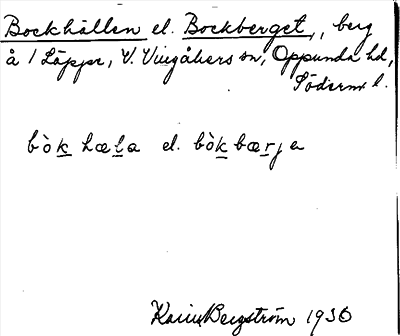 Bockhällen el. Bockberget, berg
å 1 Läppe, V. Vingåkers sn, Oppunda hd,
Söderm l.
bòk hæla el. bòk bærje
Karin Bergström 1930